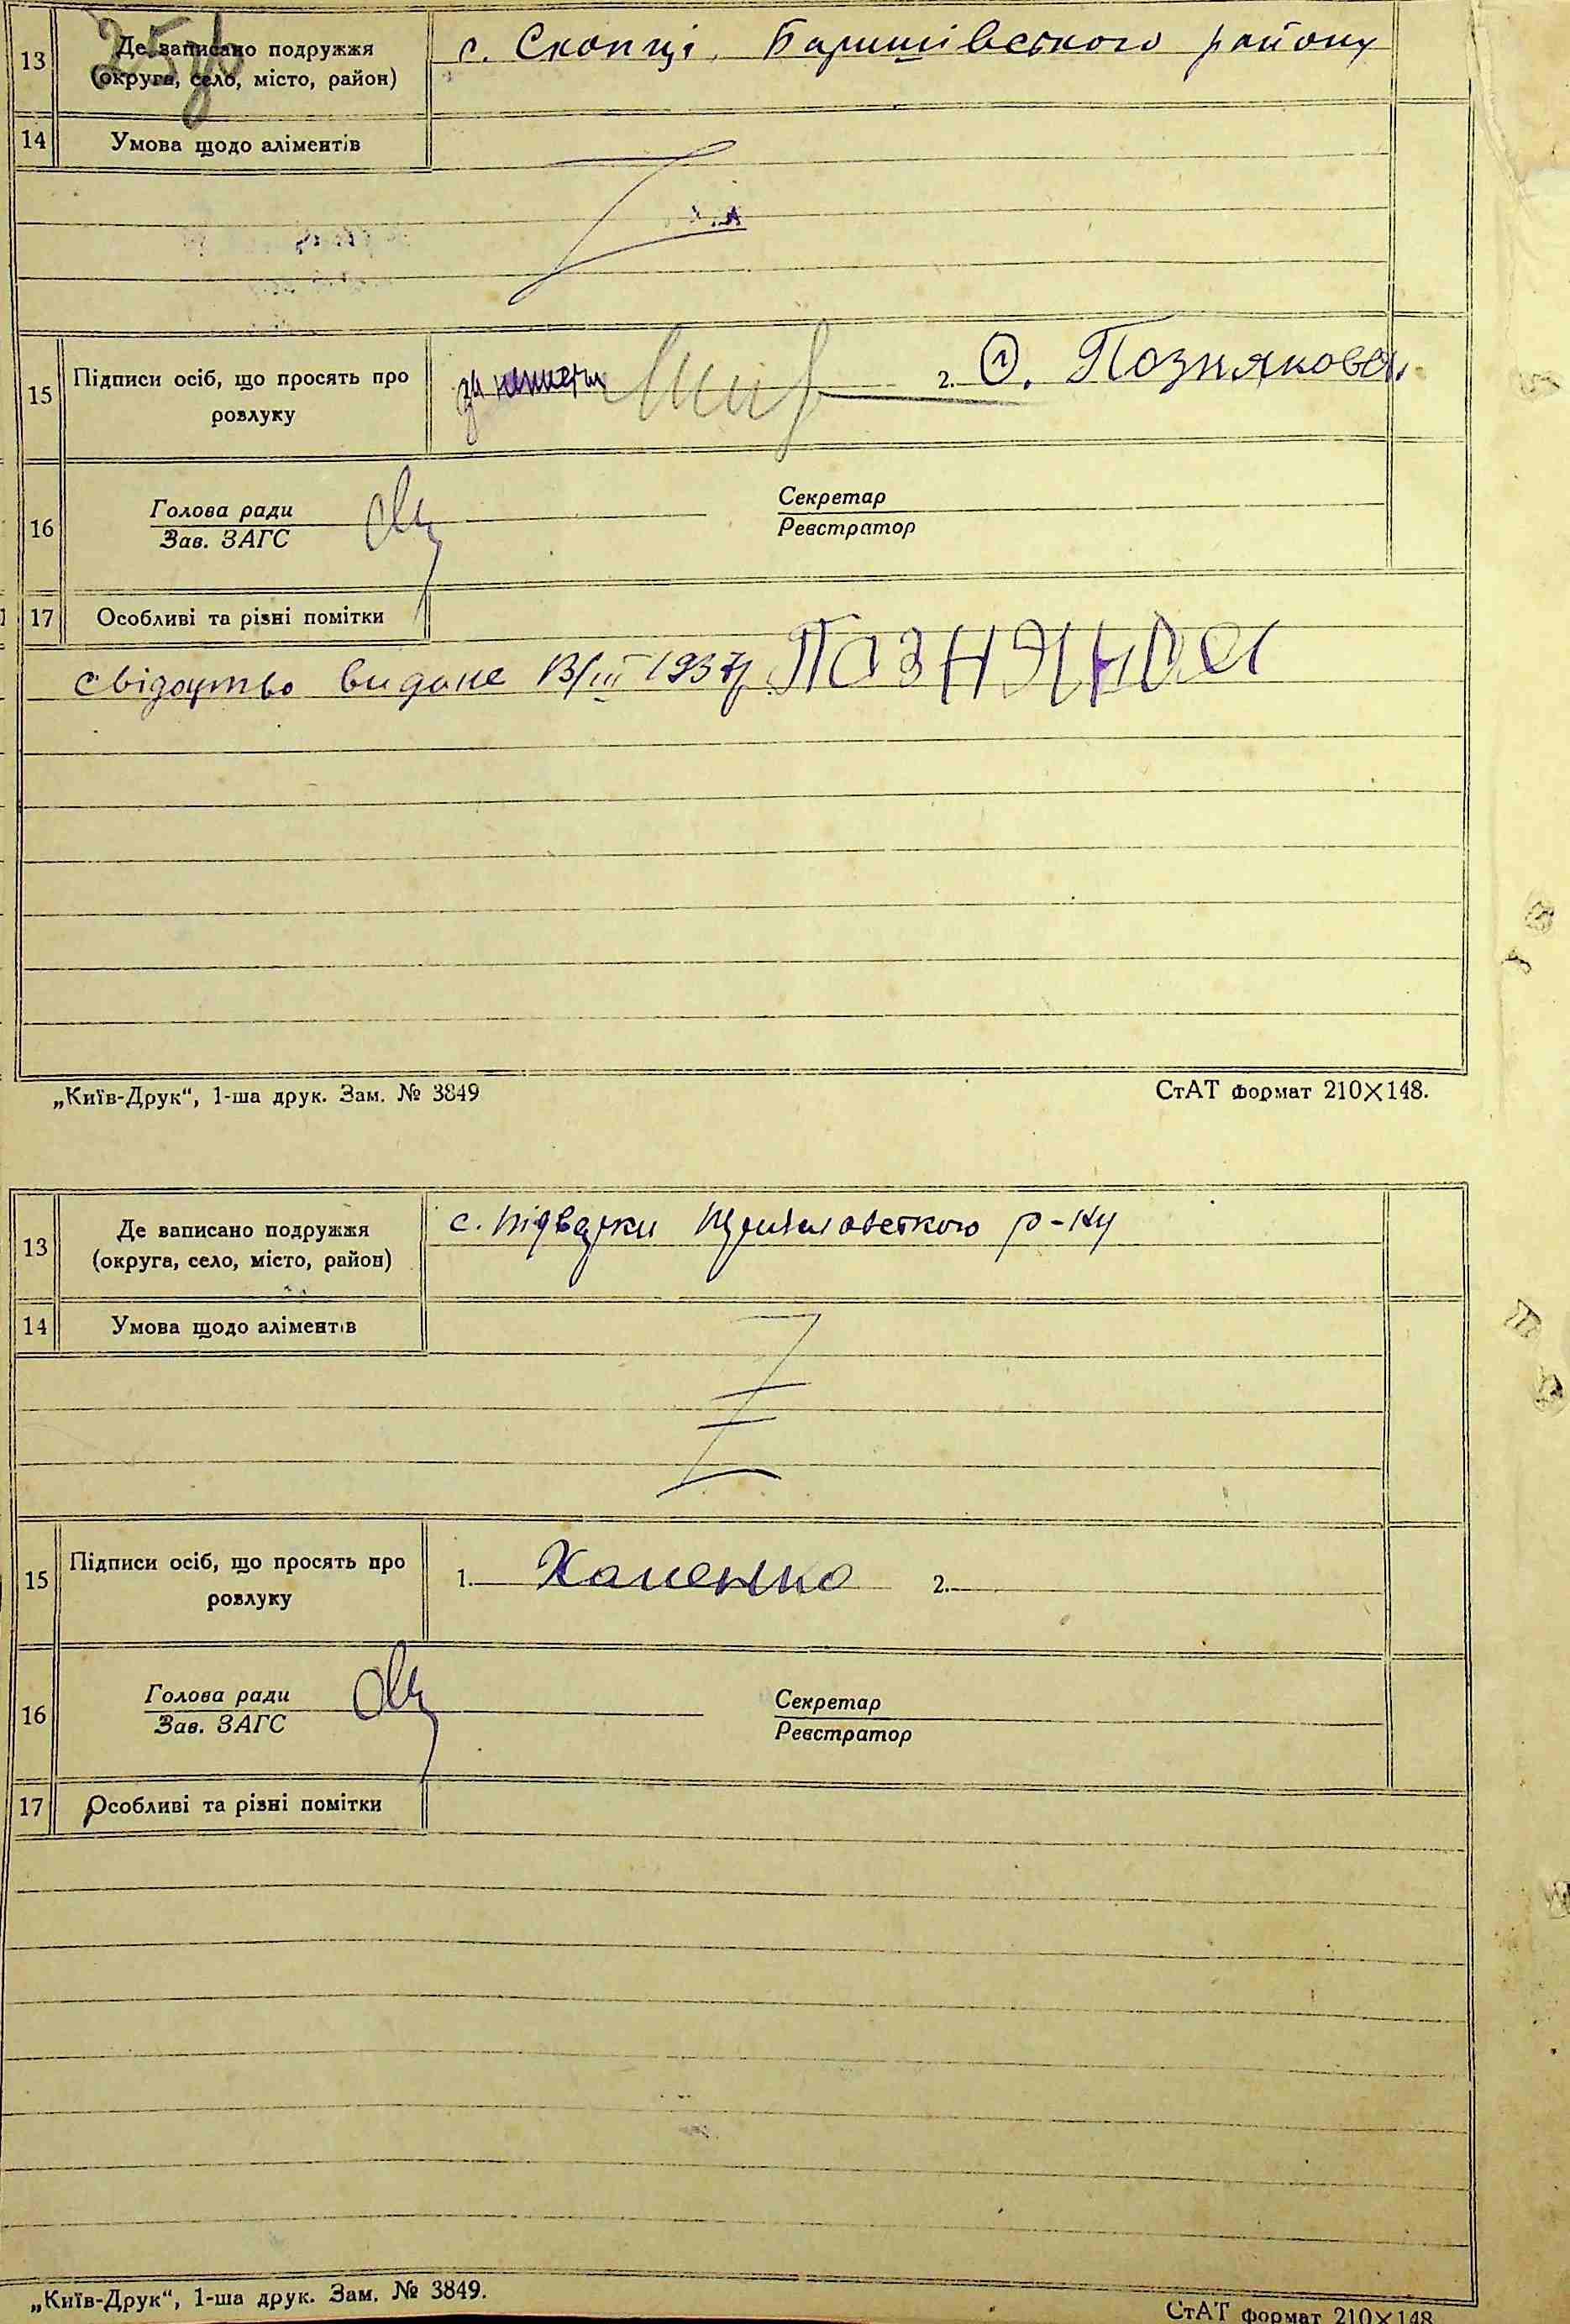 25 зв
13 Де записано подружжя (округа, село, місто, район) с. Скопці, Баришівського району
14 Умова щодо аліментів
15 Підписи осіб, що просять про розлуку 2. Познякова.
16 Голова ради Зав. ЗАГС Секретар Реєстратор
17 Особливі та різні помітки
свідоцтво видане 13/III 1937р.
„Київ-Друк“, 1-ша друк. Зам. № 3849 СтАТ формат 210×148.
13 Де записано подружжя (округа, село, місто, район) с. Підварки р-ну
14 Умова щодо аліментів
15 Підписи осіб, що просять про розлуку 1. Хоменко 2.
16 Голова ради Зав. ЗАГС Секретар Реєстратор
17 Особливі та різні помітки
„Київ-Друк“, 1-ша друк. Зам. № 3849. СтАТ формат 210×148